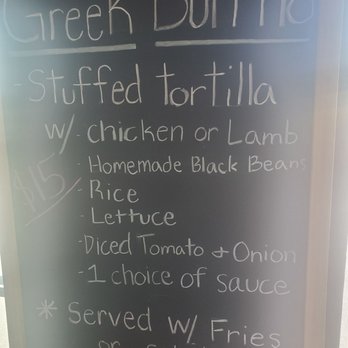 Greek Burrito
- Stuffed tortilla
w/ - chicken or Lamb
- Homemade Black Beans
$15/ - Rice
- Lettuce
- Diced Tomato + Onion
- 1 choice of sauce
* Served w/ Fries
or